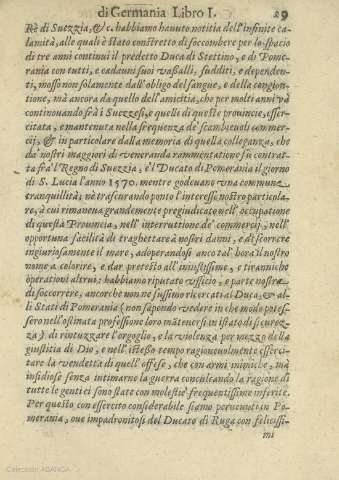 di Germania Libro I. 29
Rè di Suezzia, &c. habbiamo hauuto notitia dell'infinite ca-
lamità, alle quali è stato constretto di soccombere per lo spacio
di tre anni continui il predetto Duca di Stettino, e di Pome-
rania con tutti, e cadauni suoi vassalli, sudditi, e dependen-
ti, mosso non solamente dall'obligo del sangue, e della congion-
tione, mà ancora da quello dell'amicitia, che per molti anni và
continuando frà i Suezzesi, e quelli di queste prouincie, esser-
citata, e mantenuta nella frequenza de' scambieuoli commer-
cij, & in particolare dalla memoria di quella colleganza, che
da' nostri maggiori di veneranda rammentatione fù contrat-
ta frà'l Regno di Suezzia, e'l Ducato di Pomerania il giorno
di S. Lucia l'anno 1570. mentre godeuano vna commune
tranquillità, nè trascurando ponto l'interesse nostro particola-
re, à cui rimaneua grandemente pregiudicato nell'occupatione
di questa Prouincia, nell'interruttione de' commercij, nell'
opportuna facilità di traghettare a nostri danni, e di scorrere
engiuriosamente il mare, adoperandosi anco tal'hora il nostro
nome a colorire, e dar pretesto all'iniustissime, e tiranniche
operationi altrui; habbiamo riputato vfficio, e parte nostra
di soccorrere, ancorche non ne fussimo ricercati al Duca, & al-
li Stati di Pomerania (non sapendo vedere in che modo potes-
sero nell'ostinata professione loro mãtenersi in istato di sicurez-
za) di rintuzzare l'orgoglio, e la violenza per mezzo della
giustitia di Dio, e nell'istesso tempo ragioneuolmente esserci-
tare la vendetta di quell'offese, che con armi inimiche, mà
insidiose senza intimarne la guerra conculcando la ragione di
tutte le genti ci sono state con molestie frequentissime inferite.
Per questo con essercito considerabile siamo peruenuti in Po-
merania, oue impadronitosi del Ducato di Ruga con felicissi-
mi
Colección ABANCA